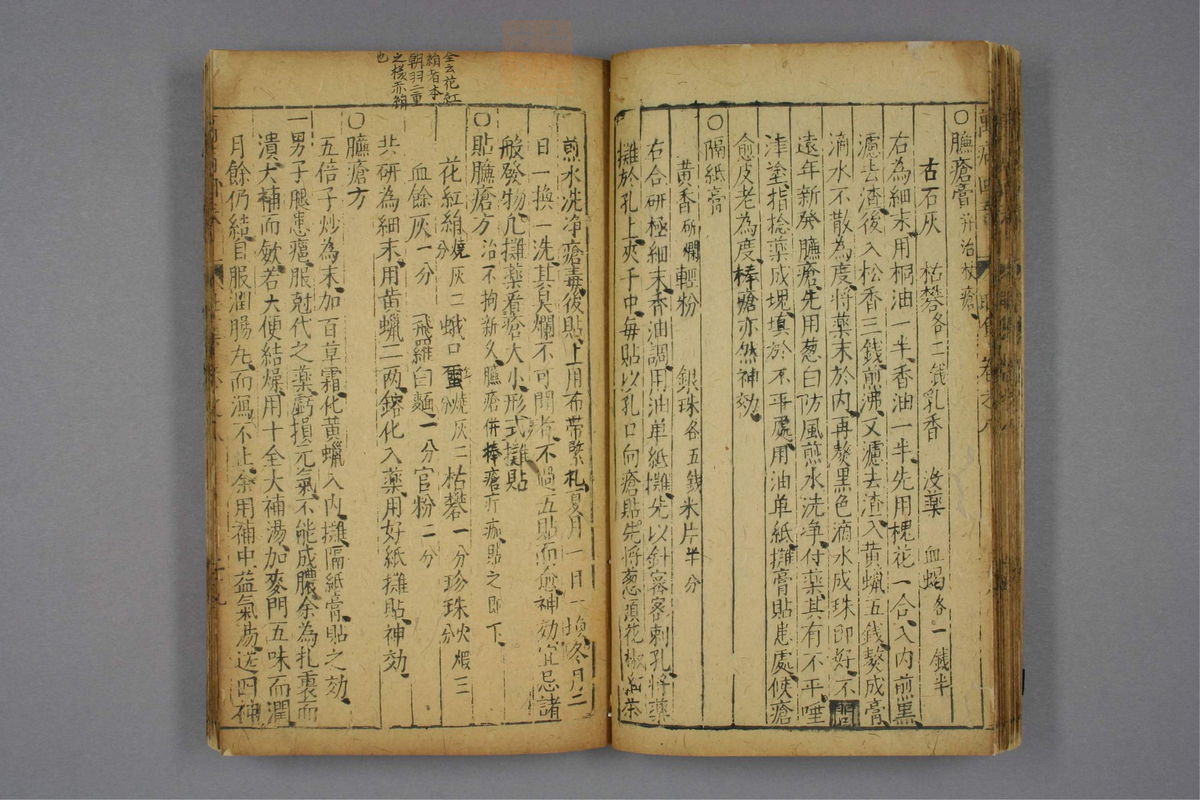 ○臁瘡膏 并治杖瘡
古石灰 枯礬各二錢 乳香 没藥 血竭各一錢半
右為細末用桐油一半香油一半先用槐花一合入内煎黑
濾去渣後入松香三錢煎沸又濾去渣入黄蠟五錢熬成膏
滴水不散為度將藥末於内再熬黒色滴水成珠即好不問
遠年新發臁瘡先用葱白防風煎水洗淨付藥其有不平唾
津塗指捻藥成塊填於不平處用油单紙攤膏貼患處候瘡
愈皮老為度棒瘡亦然神効
○隔紙膏
黄香研爛 輕粉 銀珠各五錢 米片半分
右合研極細末香油調用油单紙攤先以針密密刺孔將藥
攤於孔上夾于中毎貼以孔口向瘡貼先將葱頭花椒細茶
煎水洗净瘡毒後貼上用布帶緊札夏月一日一換冬月二
日一換一洗其臭爛不可聞者不過五貼而愈神効宜忌諸
般發物凡攤藥看瘡大小形式攤貼
○貼臁瘡方 治不拘新久臁瘡併棒瘡亦痲貼之即下
花紅絹燒灰二分 蛾口蠒燒灰二分 枯礬一分 珍珠火煆三分
血餘灰一分 飛羅白麵一分 官粉二分
共研為細末用黄蠟二两鎔化入藥用好紙攤貼神効
○臁瘡方
五倍子炒為末加百草霜化黄蠟入内攤隔紙膏貼之効
一男子腿患瘡服尅伐之藥虧損元氣不能成膿余為托裏而
潰大補而斂若大便結燥用十全大補湯加麥門五味而潤
月餘仍結自服潤腸丸而瀉不止余用補中益氣湯送四神
全云花紅
絹者本
朝羽二重
之様赤絹
也